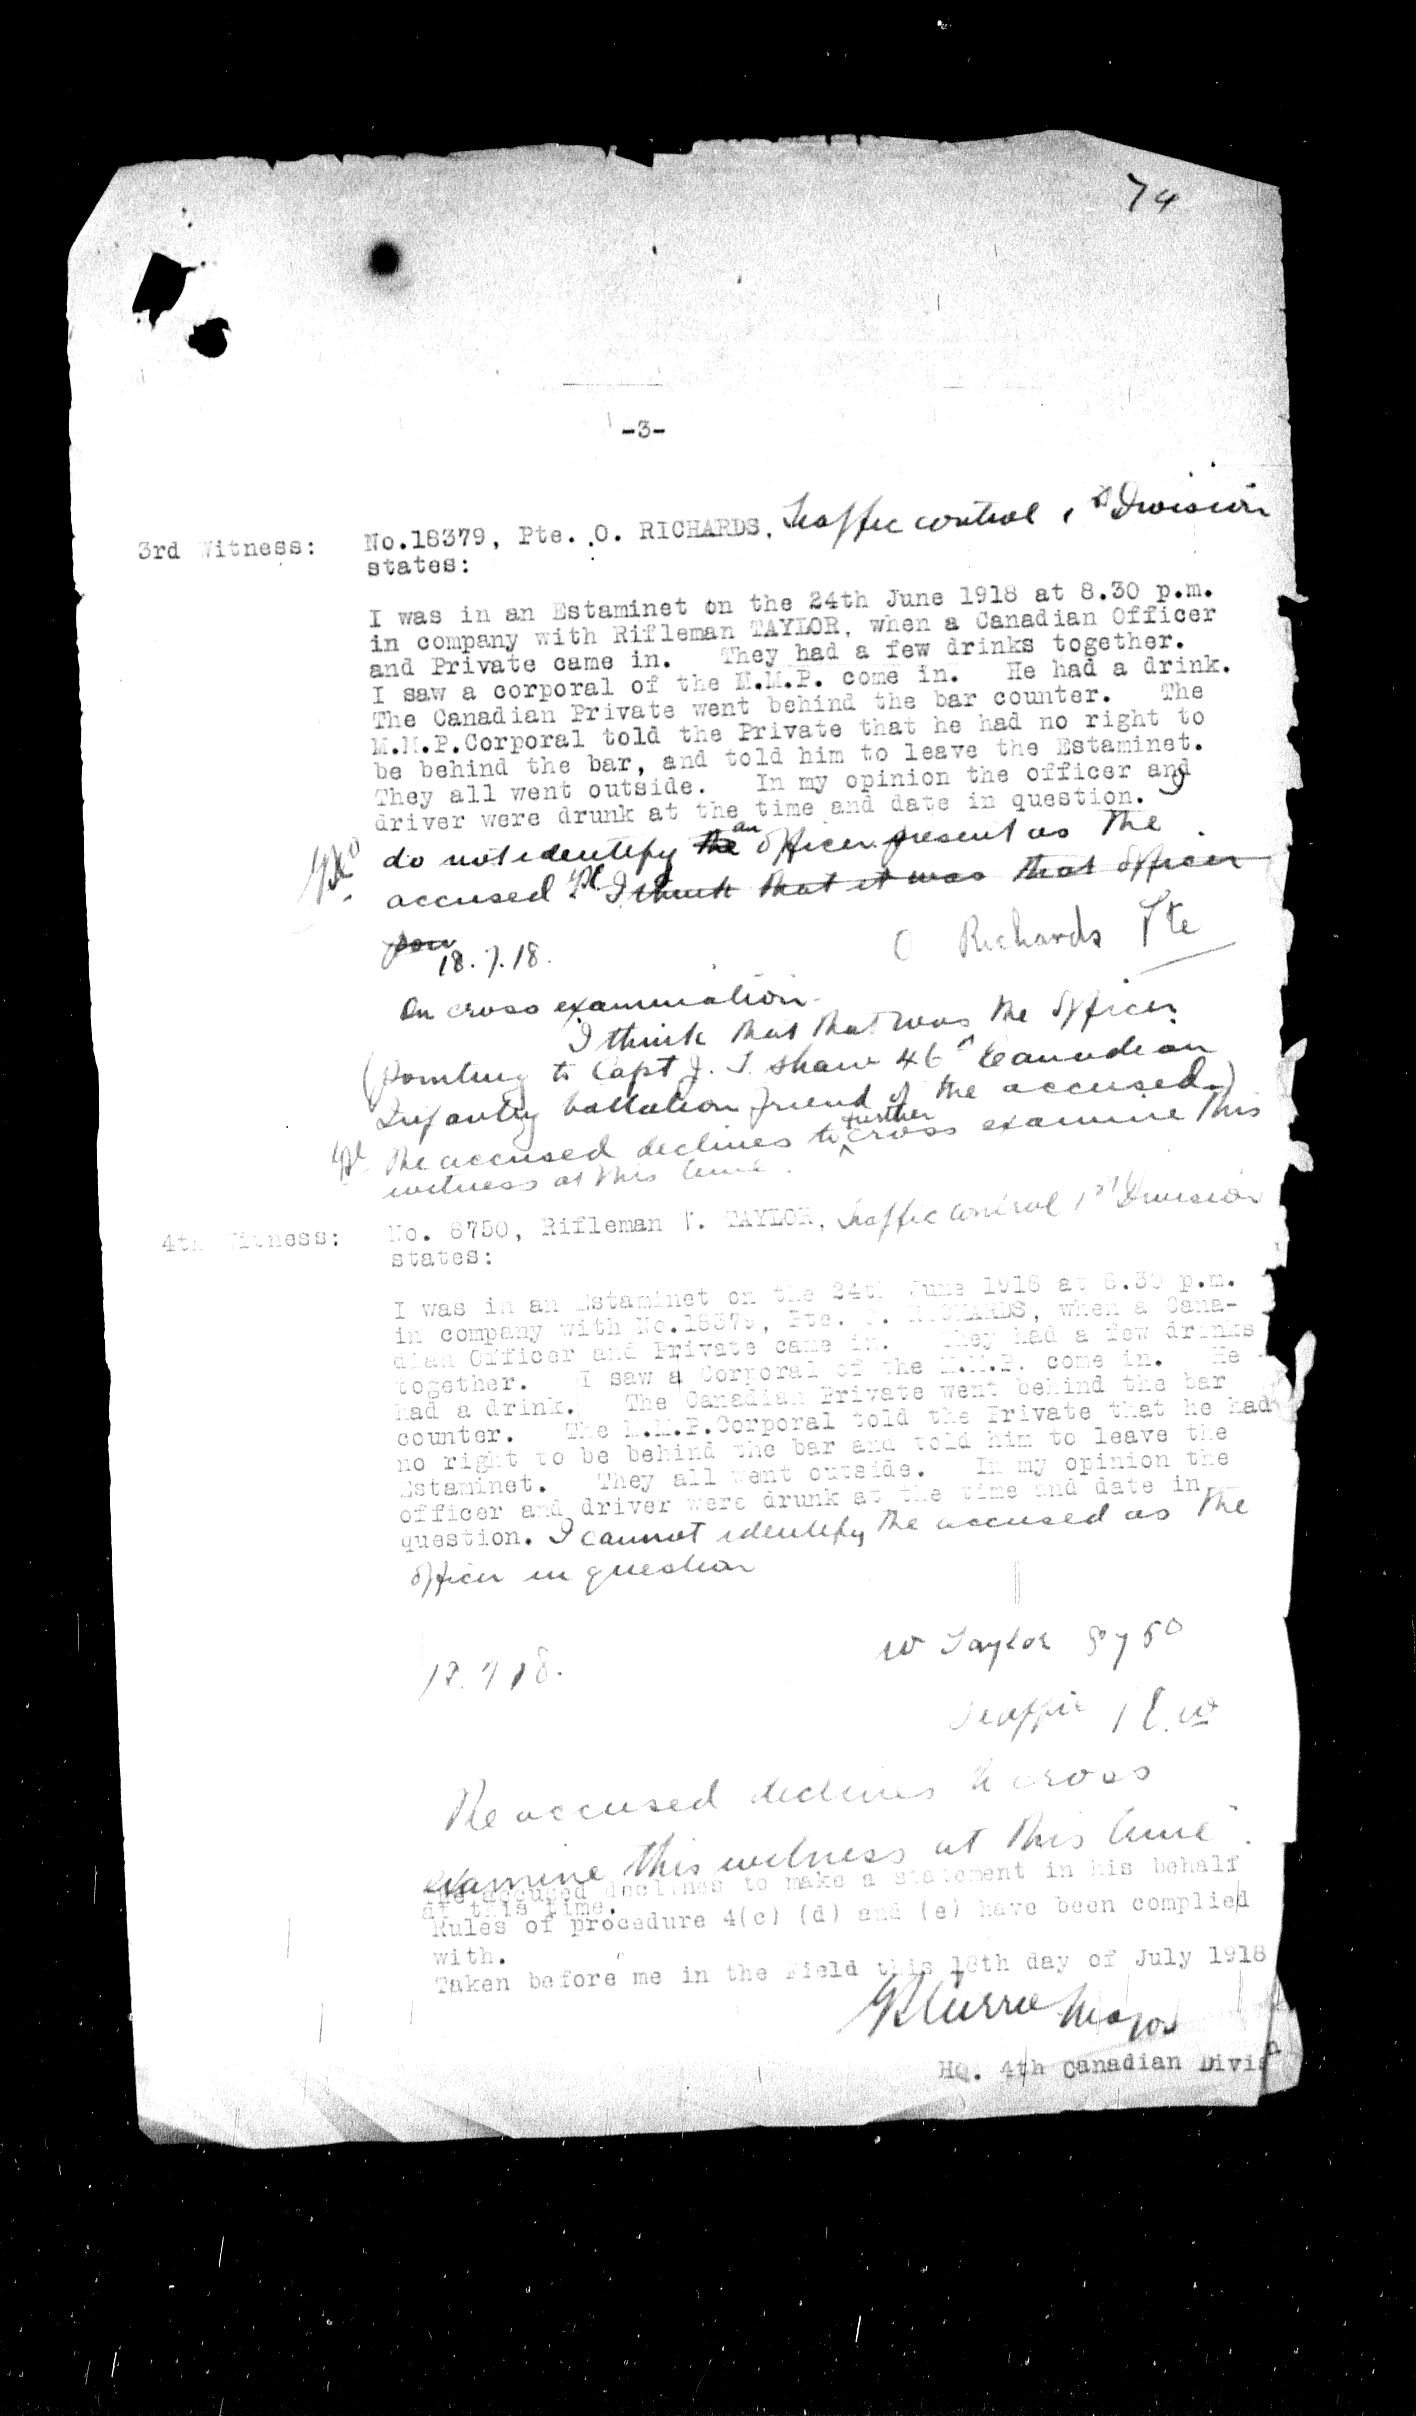 74
-3-
3rd Witness: No.18379, Pte. O. RICHARDS, Traffic control 1st Division
states:
I was in an Estaminet on the 24th June 1918 at 8.30 p.m.
in company with Rifleman TAYLOR, when a Canadian Officer
and Private came in. They had a few drinks together.
I saw a corporal of the M.M.P. come in. He had a drink.
The Canadian Private went behind the bar counter. The
M.M.P.Corporal told the Private that he had no right to
be behind the bar, and told him to leave the Estaminet.
They all went outside. In my opinion the officer and
driver were drunk at the time and date in question. I
do not identify the an officer present as the
accused. I think that it was that officer
18.7.18.
O Richards Pte
On cross examination.
I think that that was the officer
(pointing to Capt J. T. Shaw 46th Canadian
Infantry battalion friend of the accused)
The accused declines to further cross examine this
witness at this time.
4th Witness: No. 8750, Rifleman W. TAYLOR, Traffic control 1st Division
states:
I was in an Estaminet on the 24th June 1918 at 8.30 p.m.
in company with No.18379, Pte. O. RICHARDS, when a Cana-
dian Officer and Private came in. They had a few drinks
together. I saw a Corporal of the M.M.P. come in. He
had a drink. The Canadian Private went behind the bar
counter. The M.M.P.Corporal told the Private that he had
no right to be behind the bar and told him to leave the
Estaminet. They all went outside. In my opinion the
officer and driver were drunk at the time and date in
question. I cannot identify the accused as the
officer in question
18.7.18.
W Taylor 8750
Traffic
The accused declines to cross
examine this witness at this time.
The accused declines to make a statement in his behalf
at this time.
Rules of procedure 4(c) (d) and (e) have been complied
with.
Taken before me in the Field this 18th day of July 1918
Currie Major
HQ. 4th Canadian Divisn